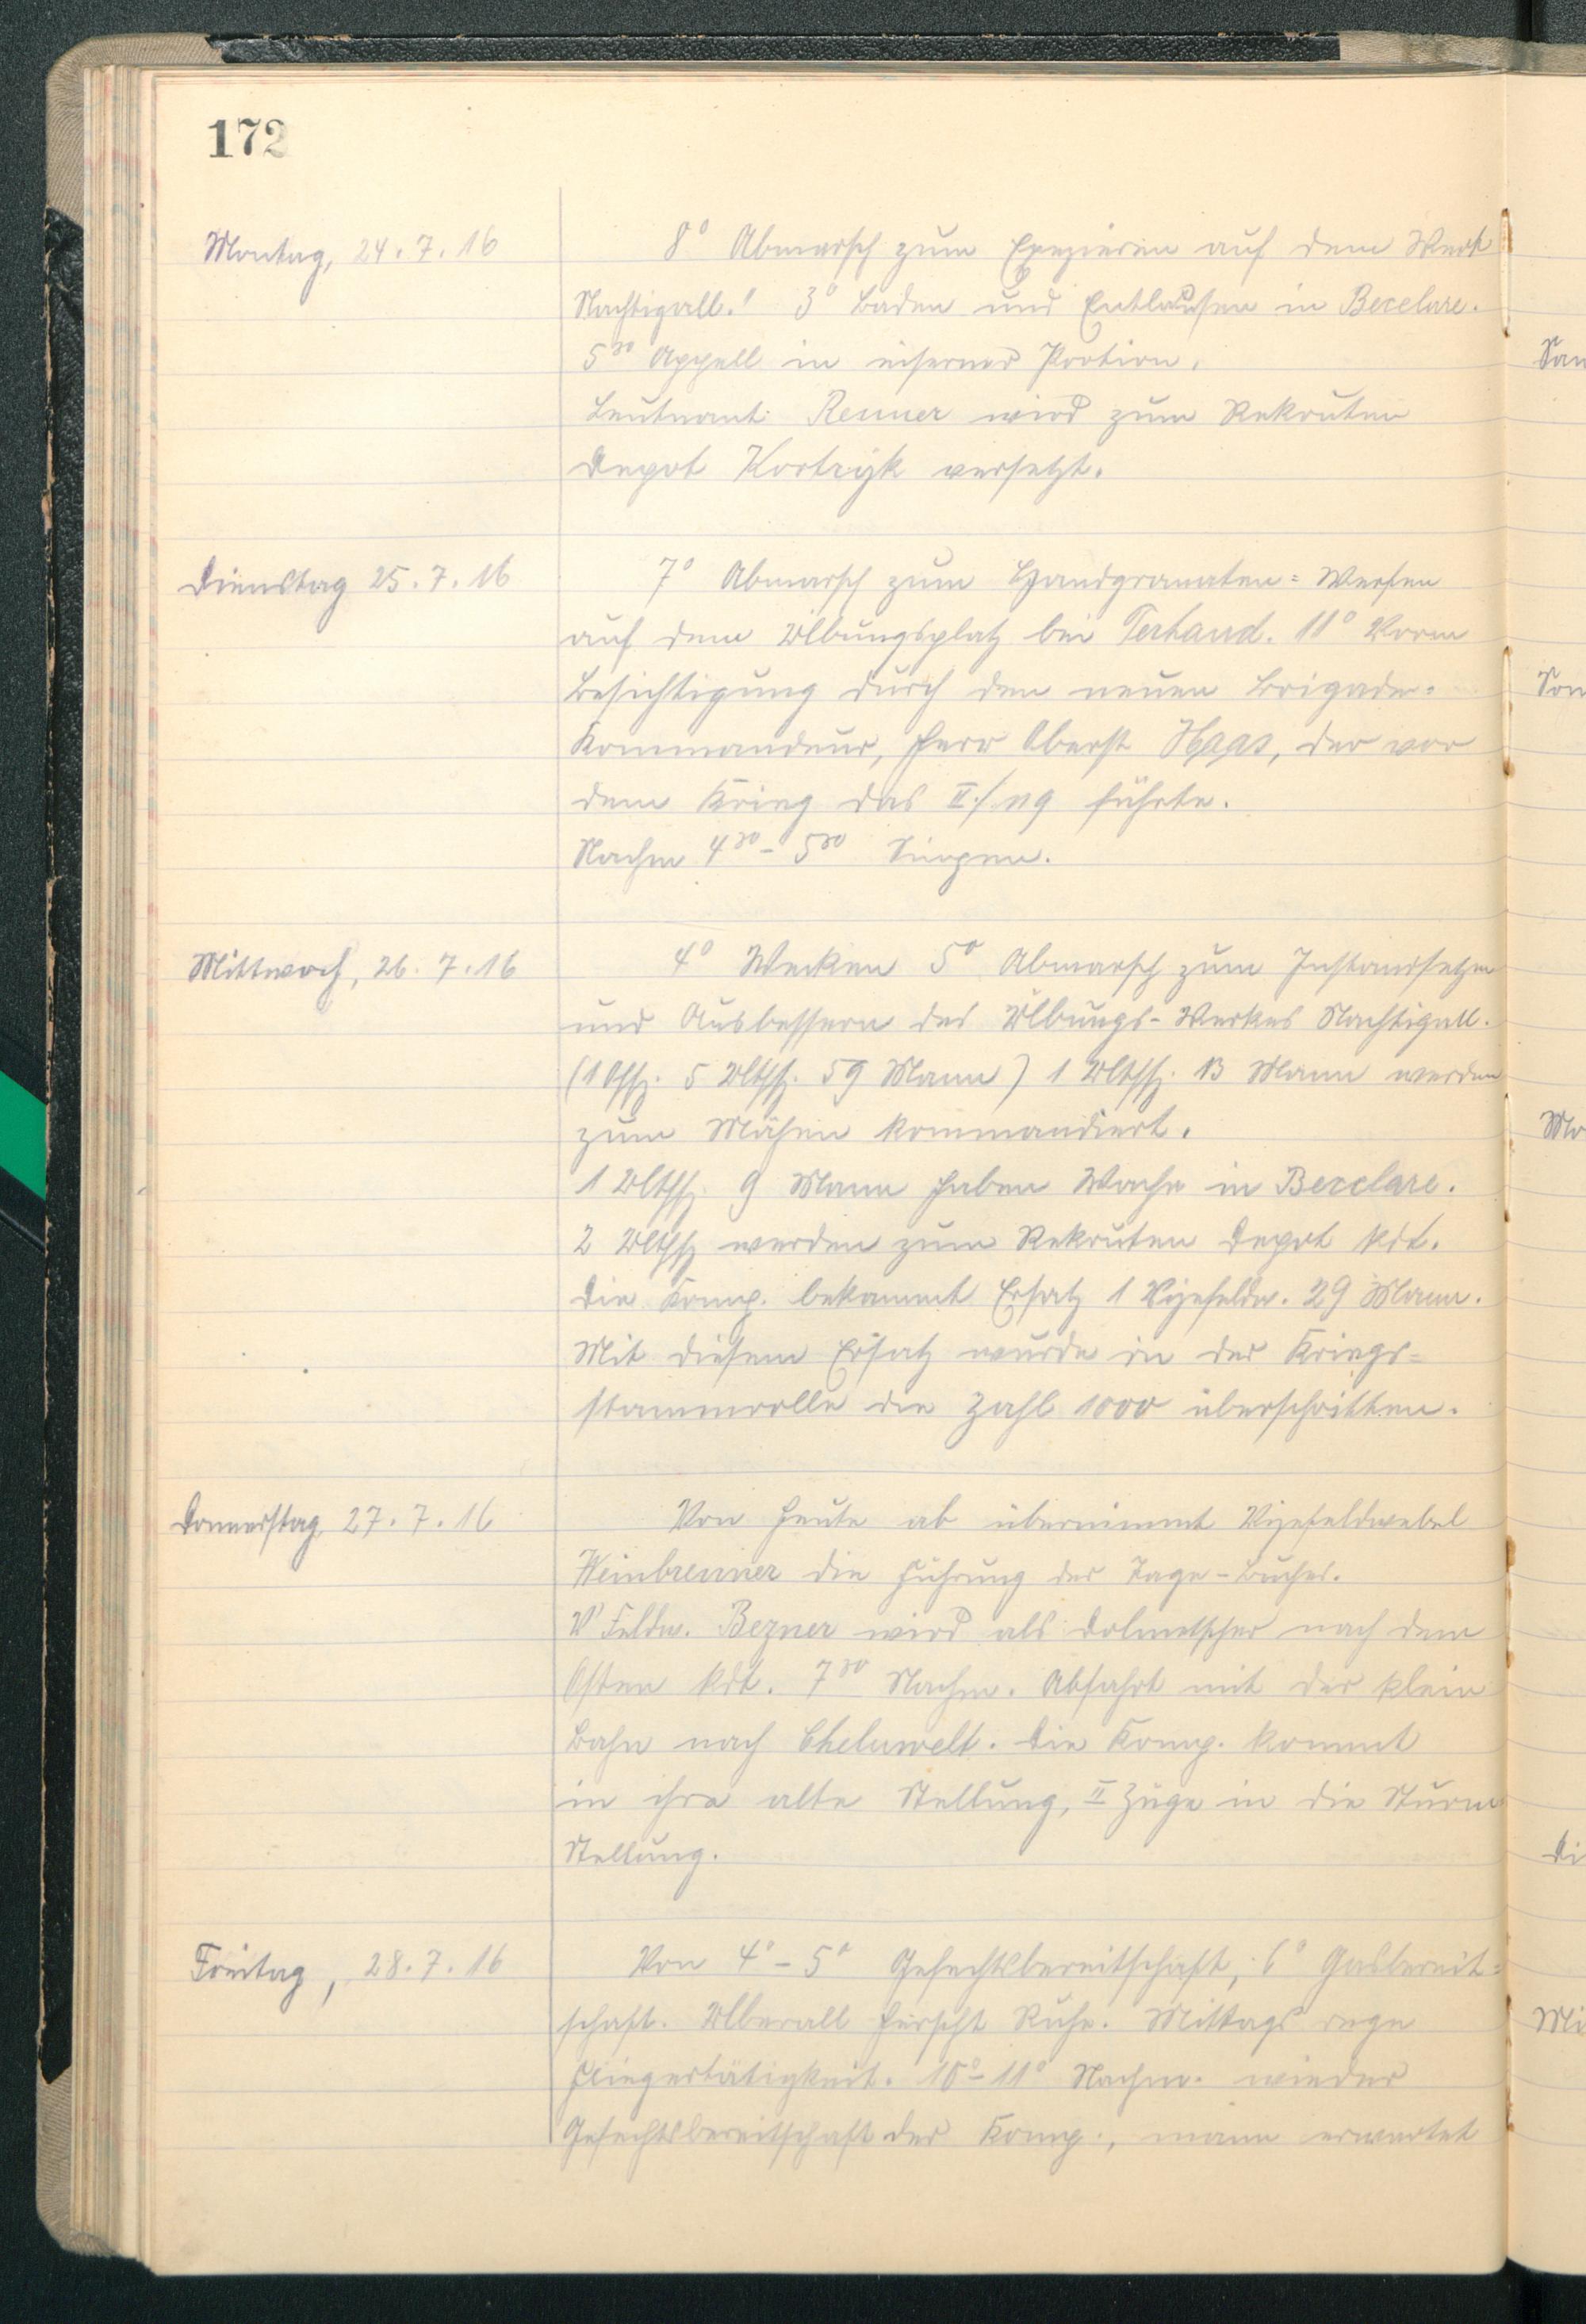 172
Montag, 24.7.16
8° Abmarsch zum Exezieren auf dem Werk
Nachtigall! 3° Baden und Entlausen in Becelare.
5³⁰ Appell in eiserner Portion.
Leutnant Renner wird zum Rekruten
Depot Kortryk versetzt.
Dienstag 25.7.16
7° Abmarsch zum Handgranaten= Werfen
auf dem Übungsplatz bei Terhand. 11° Vorm
Besichtigung durch den neuen Brigade=
Kommandeur, Herr Oberst Haas, der vor
dem Krieg das II./119 führte.
Nachm 4³⁰ - 5³⁰ Singen.
Mittwoch, 26.7.16
4° Wecken 5° Abmarsch zum Instandsetzen
und Ausbessern des Übungs-Werkes Nachtigall.
(1 Offz. 5 Utffz. 59 Mann) 1 Utffz. 13 Mann werden
zum Mähen kommandiert.
1 Utffz. 9 Mann haben Wache in Becelare.
2 Utffz werden zum Rekruten Depot kdt.
Die Komp. bekommt Ersatz 1 Vizefeldw. 29 Mann.
Mit diesem Ersatz wurde in der Kriegs=
stammrolle die Zahl 1000 überschritten.
Donnerstag, 27.7.16
Von heute ab übernimmt Vizefeldwebel
Weinbrenner die Führung des Tage-Buches.
V Feldw. Bezner wird als Dolmetscher nach dem
Osten kdt. 7³⁰ Nachm. Abfahrt mit der klein
Bahn nach Cheluwelt. Die Komp. kommt
in ihre alte Stellung, II Züge in die Sturm
Stellung.
Freitag, 28.7.16
Von 4° - 5° Gefechtsbereitschaft, 6° Gasbereit=
schaft. Überall herscht Ruhe. Mittags rege
Fliegertätigkeit. 10° - 11° Nachm. wieder
Gefechtsbereitschaft der Komp., mann erwartet